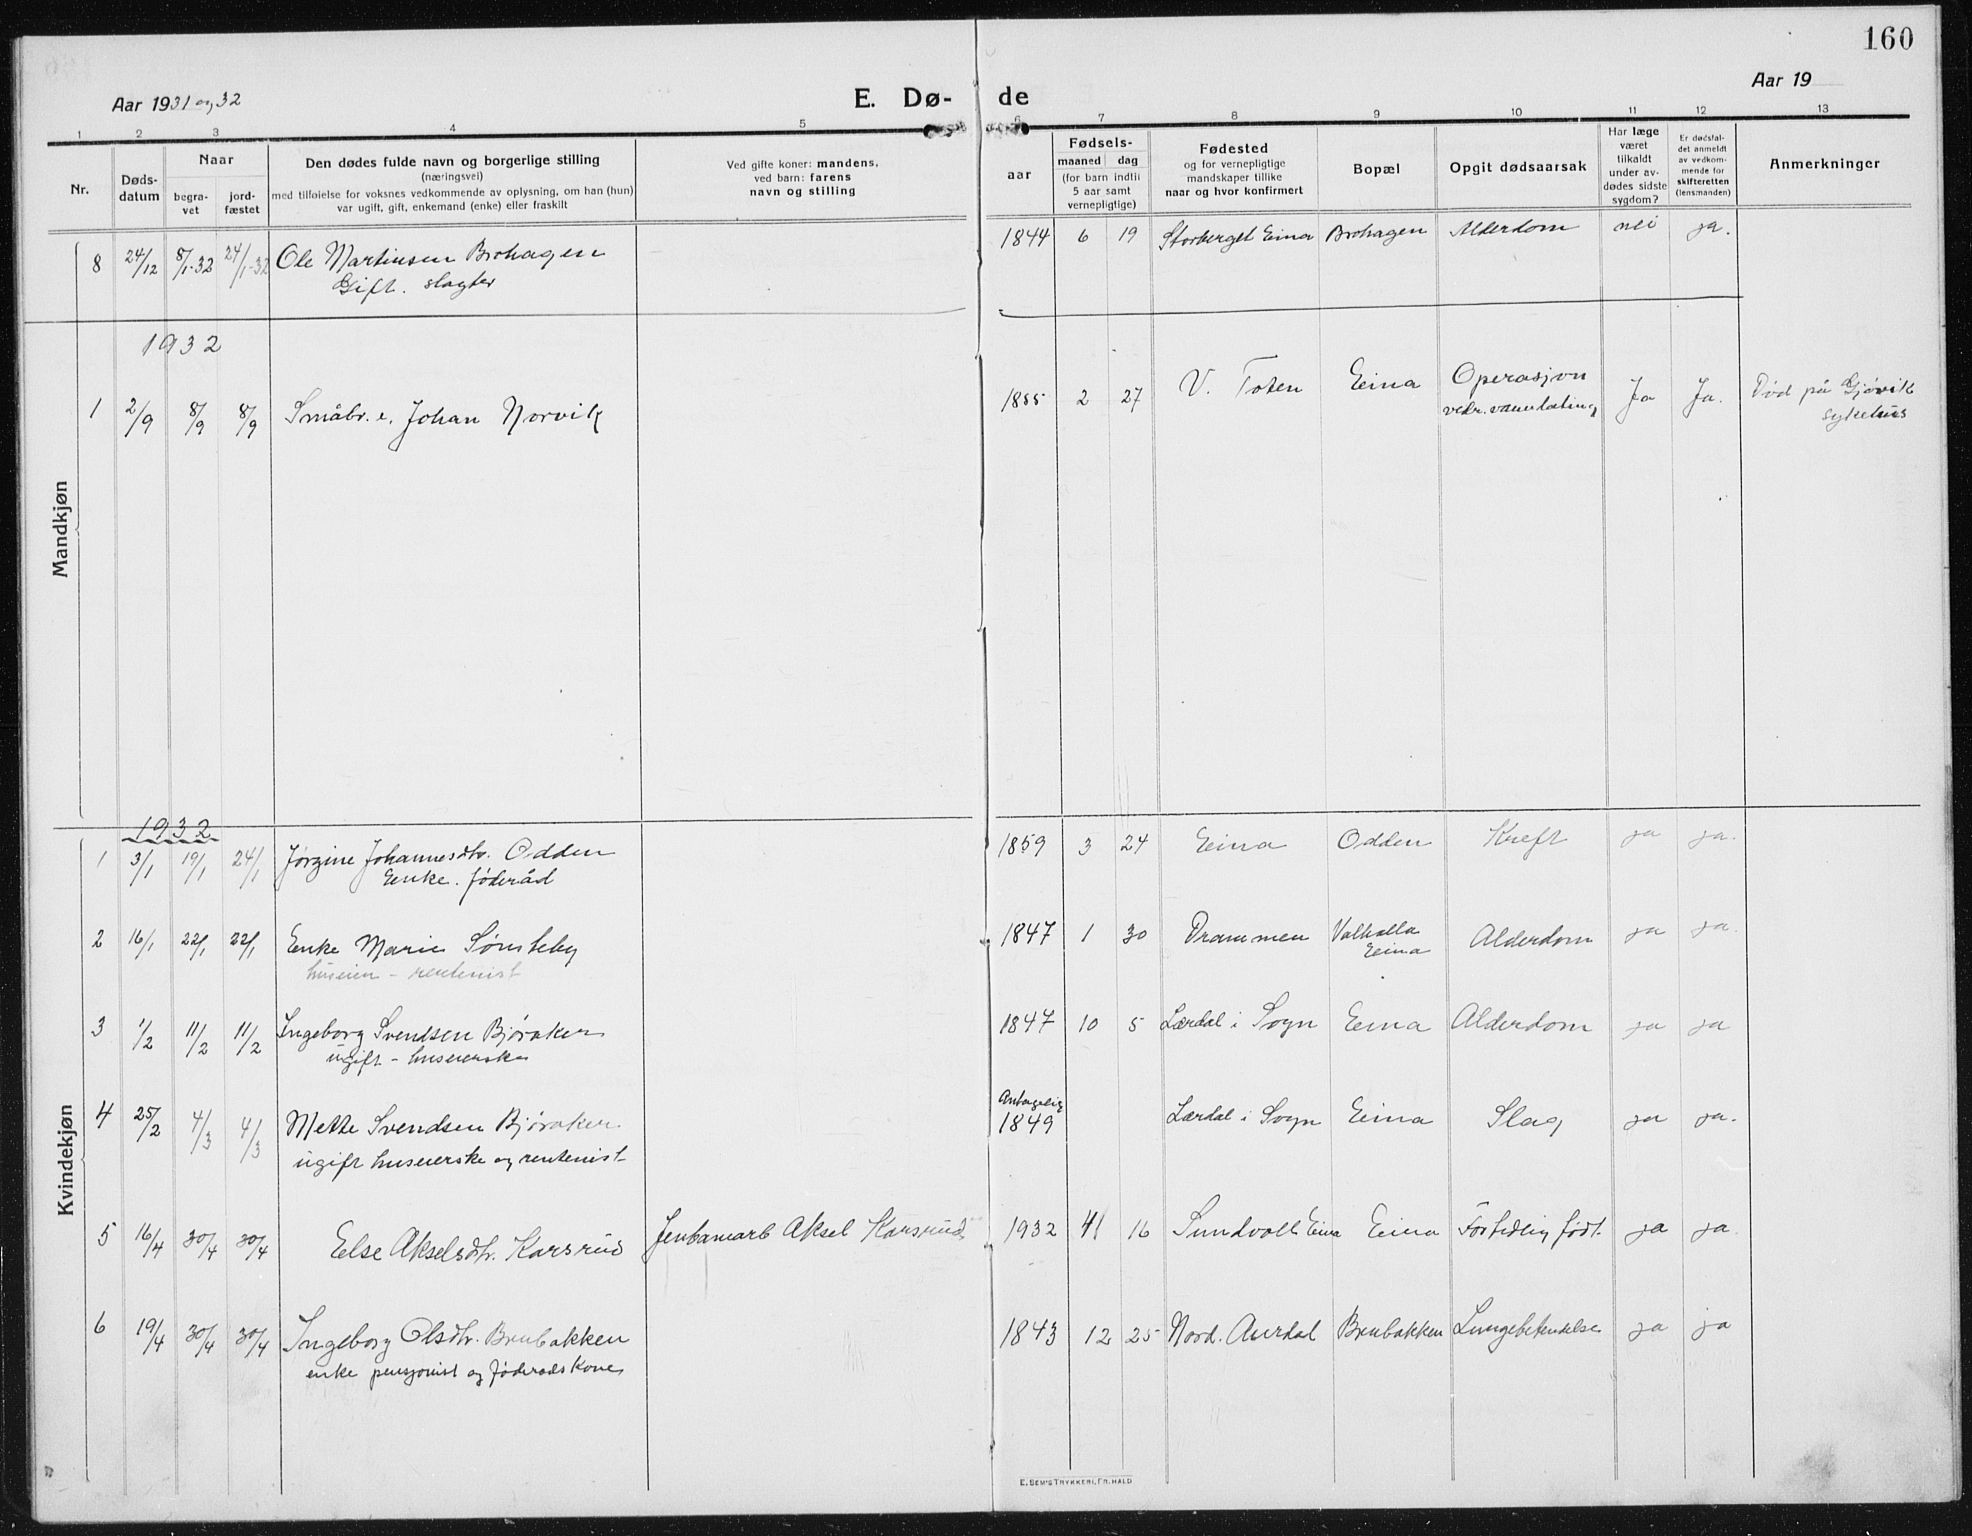 160
Aar 1931 og 32
E. Dø- de
Aar 19
1 2 3 4 5 6 7 8 9 10 11 12 13
Nr.
Døds-
datum
Naar
begra-
vet
jord-
fæstet
Den dødes fulde navn og borgerlige stilling
(næringsvei)
med tilføielse for voksnes vedkommende av oplysning, om han (hun)
var ugift, gift, enkemand (enke) eller fraskilt
Ved gifte koner: mandens,
ved barn: farens
navn og stilling
aar
Fødsels-
maaned dag
(for barn indtil
5 aar samt
vernepligtige)
Fødested
og for vernepligtige
mandskaper tillike
naar og hvor konfirmert
Bopæl
Opgit dødsaarsak
Har læge
været
tilkaldt
under av-
dødes sidste
sygdom?
Er dødsfal-
det anmeldt
av vedkom-
mende for
skifteretten
(lensmanden)
Anmerkninger
Mandkjøn
8 24/12 8/1-32 24/1-32 Ole Martinsen Brohagen 1844 6 19 Storberget Eina Brohagen Alderdom nei ja.
Gift. slagter
1932
1 2/9 8/9 8/9 Småbr. e. Johan Norvik 1855 2 27 V. Toten Eina Operasjon Ja Ja. Død på Gjøvik
vedr. vannlating sykehus
Kvindekjøn
1932
1 3/1 19/1 24/1 Jørgine Johannesdtr. Odden 1859 3 24 Eina Odden Kreft ja ja.
Enke. føderåd
2 16/1 22/1 22/1 Enke Marie Sønsteby 1847 1 30 Drammen Valhalla Alderdom ja ja.
Eina
huseier - rentenist
3 1/2 11/2 11/2 Ingeborg Svendsen Bjøraker 1847 10 5 Lærdal i Sogn Eina Alderdom ja ja
ugift - huseierske
4 25/2 4/3 4/3 Mette Svendsen Bjøraker Antagelig 1849 Lærdal i Sogn Eina Slag ja ja.
ugift huseierske og rentenist
5 16/4 30/4 30/4 Else Akselsdtr. Karsrud Jenbanearb Aksel Karsrud 1932 4 16 Sundvoll Eina Eina Fortidlig født. ja ja.
6 19/4 30/4 30/4 Ingeborg Olsdtr. Brubakken 1843 12 25 Nord. Aurdal Brubakken Lungebetendelse ja ja
enke pensjonist og føderadskone
E. SEM'S TRYKKERI, FR. HALD